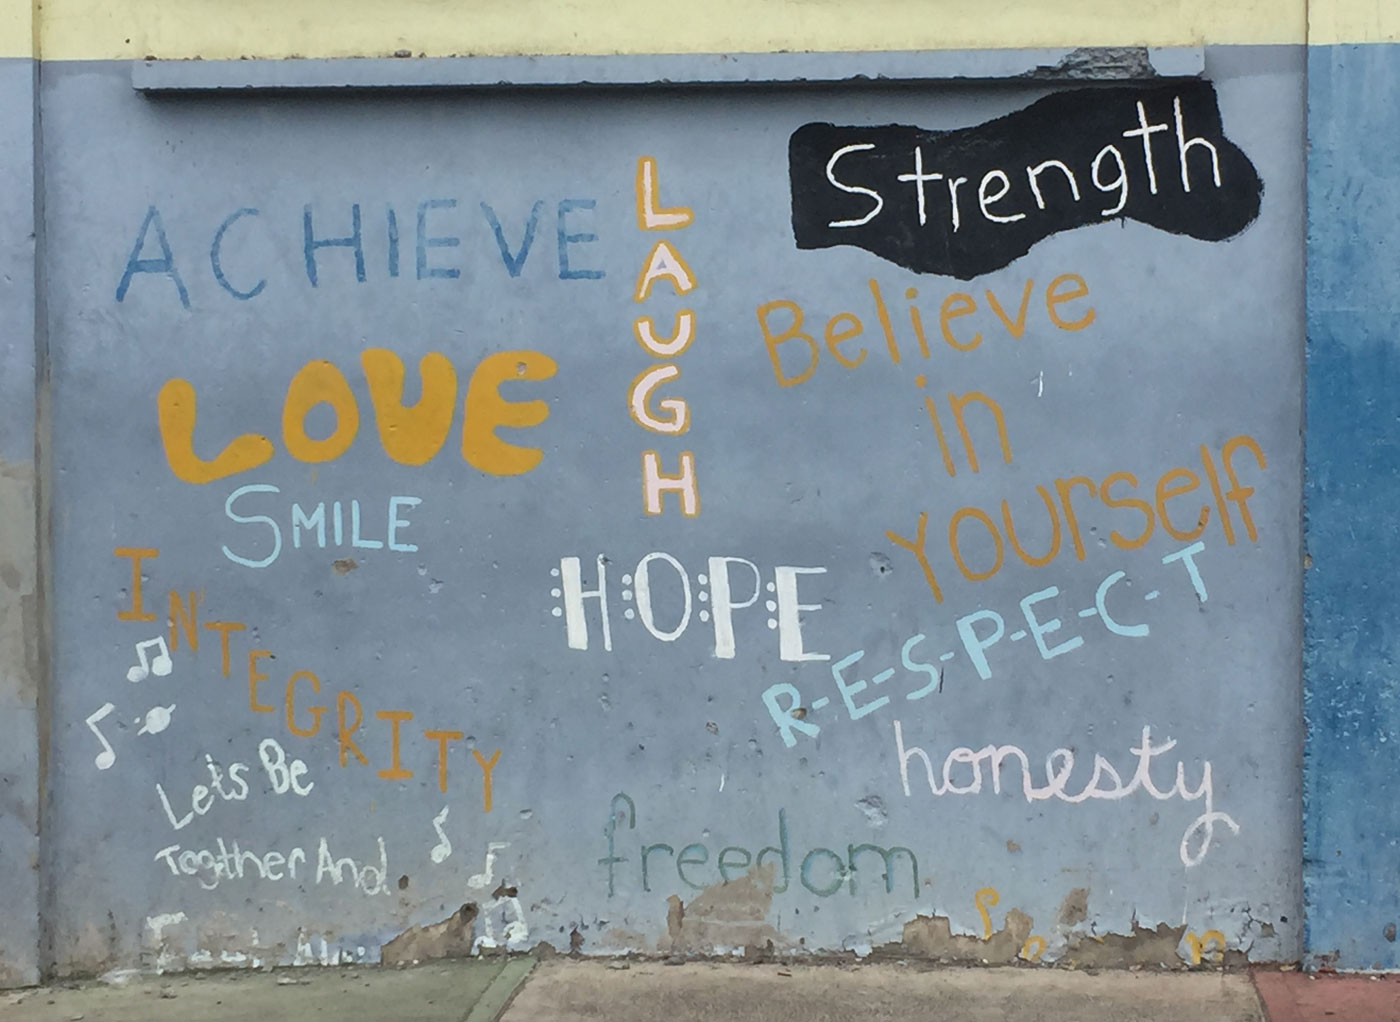 Strength
ACHIEVE
LAUGH
Believe
in
Yourself
LOVE
SMILE
HOPE
R-E-S-P-E-C-T
INTEGRITY
honesty
Lets Be
Together And
freedom